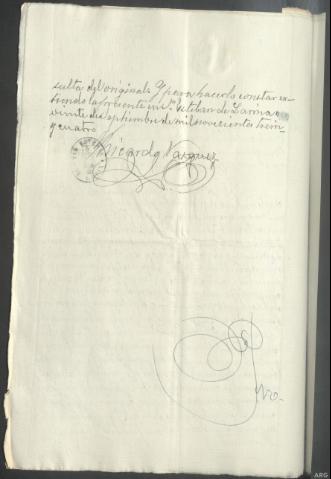 sulta del original. Y para hacerlo constar ex-
tiendo la presente en Sn. Esteban de Larín a
veinte de septiembre de mil novecientos trein
y cuatro
Ricardo Vazquez
ARG